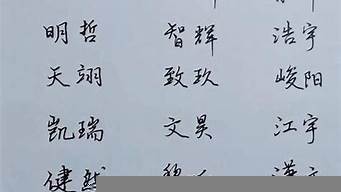 明哲 智辉 浩宇
天翊 致玖 峻阳
凯瑞 文昊 江宇
健